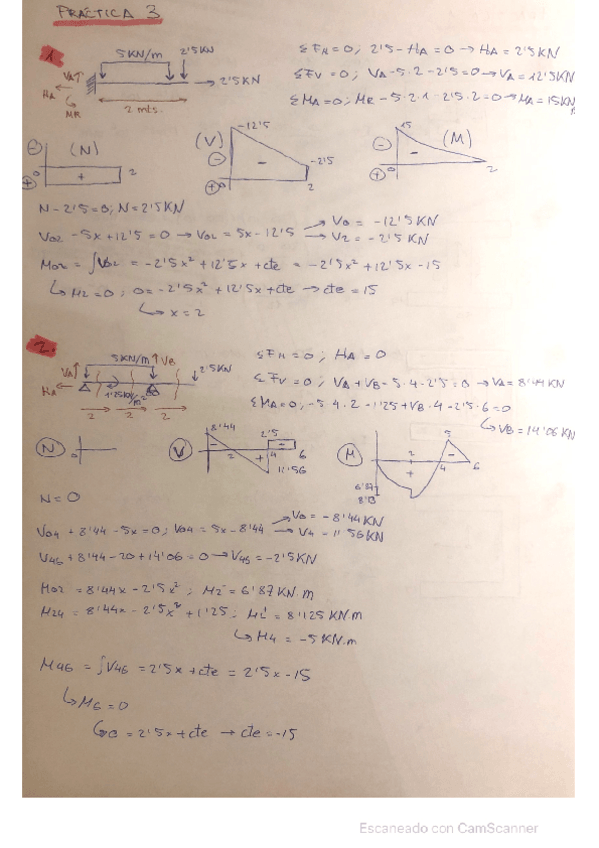 PRÁCTICA 3
1.
5 KN/m 2'5 KN
2'5 KN
VA
HA
MR
2 mts.
ΣFH = 0; 2'5 - HA = 0 → HA = 2'5 KN
ΣFV = 0; VA - 5·2 - 2'5 = 0 → VA = 12'5 KN
ΣMA = 0; MR - 5·2·1 - 2'5·2 = 0 → MA = 15 KN
(N) + 2
(V) -12'5 - -2'5 2
(M) 15 - 2
N - 2'5 = 0; N = 2'5 KN
V02 - 5x + 12'5 = 0 → V02 = 5x - 12'5
V0 = -12'5 KN
V2 = -2'5 KN
M02 = ∫V02 = -2'5x² + 12'5x + cte = -2'5x² + 12'5x - 15
↳ M2 = 0; 0 = -2'5x² + 12'5x + cte → cte = 15
↳ x = 2
2.
5 KN/m VB 2'5 KN
VA
HA
2 2 2
ΣFH = 0; HA = 0
ΣFV = 0; VA + VB - 5·4 - 2'5 = 0 → VA = 8'44 KN
ΣMA = 0; -5·4·2 - 1'25 + VB·4 - 2'5·6 = 0
↳ VB = 14'06 KN
N 0
V 8'44 2 + 4 2'5 - 6 11'56
M 2 + 4 5 - 6 6'87
N = 0
V04 + 8'44 - 5x = 0; V04 = 5x - 8'44
V0 = -8'44 KN
V4 = 11'56 KN
V46 + 8'44 - 20 + 14'06 = 0 → V46 = -2'5 KN
M02 = 8'44x - 2'5x²; M2 = 6'87 KN.m
M24 = 8'44x - 2'5x² + 1'25; M2' = 8'125 KN.m
↳ M4 = -5 KN.m
M46 = ∫V46 = 2'5x + cte = 2'5x - 15
↳ M6 = 0
↳ 0 = 2'5x + cte → cte = -15
Escaneado con CamScanner